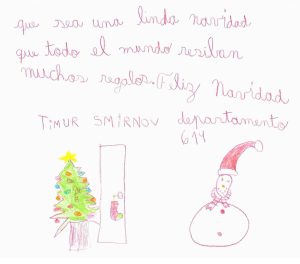 que sea una linda navidad
que todo el mundo resiban
muchos regalos. Feliz Navidad
TIMUR SMIRNOV departamento
614